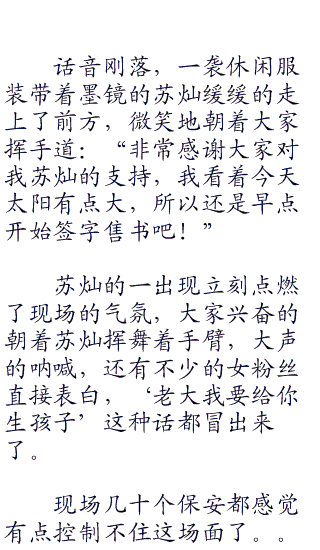 话音刚落，一袭休闲服
装带着墨镜的苏灿缓缓的走
上了前方，微笑地朝着大家
挥手道：“非常感谢大家对
我苏灿的支持，我看着今天
太阳有点大，所以还是早点
开始签字售书吧！”
苏灿的一出现立刻点燃
了现场的气氛，大家兴奋的
朝着苏灿挥舞着手臂，大声
的呐喊，还有不少的女粉丝
直接表白，‘老大我要给你
生孩子’这种话都冒出来
了。
现场几十个保安都感觉
有点控制不住这场面了。。